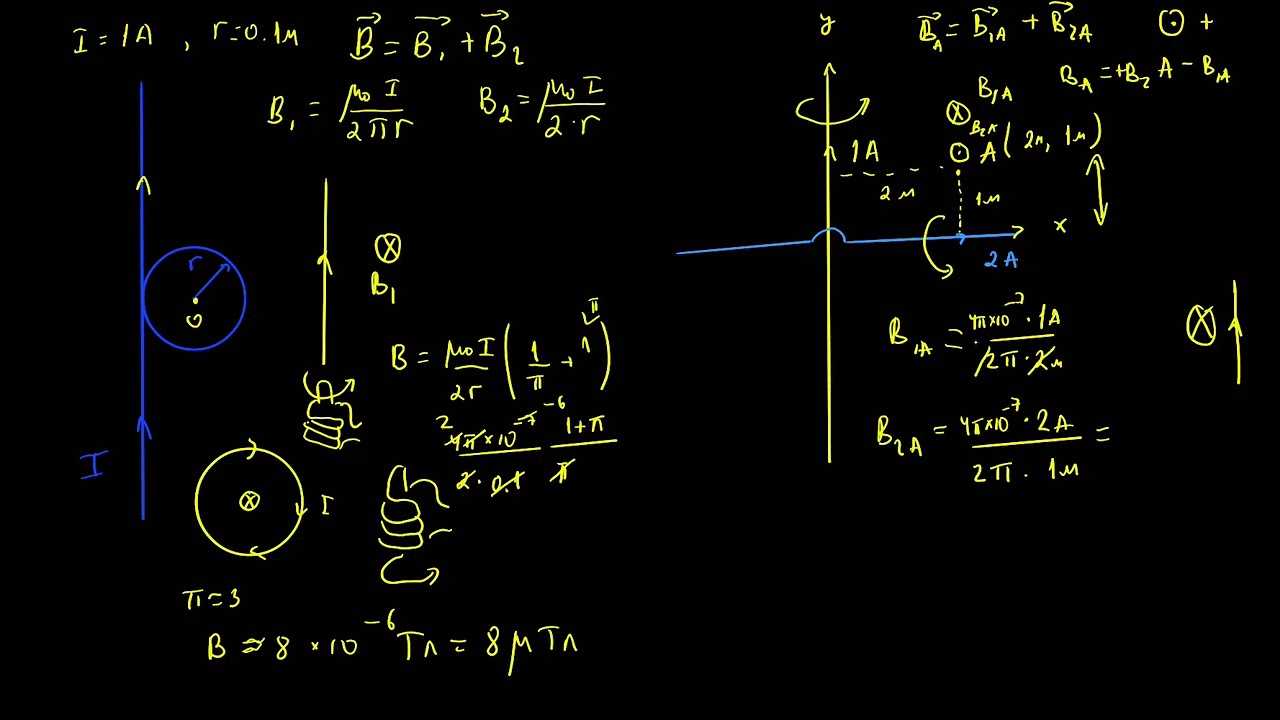 I = 1A , r=0.1м
B⃗ = B⃗₁ + B⃗₂
B₁ = μ₀ I / 2πr
B₂ = μ₀ I / 2·r
r
O
B₁
B = μ₀I / 2r (1/π + 1) π
2 4π×10⁻⁷ ⁻⁶ / 2·0.1 1+π / π
I
I
π=3
B ≈ 8 × 10⁻⁶ Тл = 8 μ Тл
y
B⃗_A = B⃗₁A + B⃗₂A ⊙ +
B_A = +B₂ A − B₁A
B₁A
⊗
B₂A
1A
⊙ A (2м, 1м)
2м
1м
x
2A
B₁A = 4π×10⁻⁷ · 1A / 2π · 2м
⊗
B₂A = 4π×10⁻⁷ · 2A / 2π · 1м =